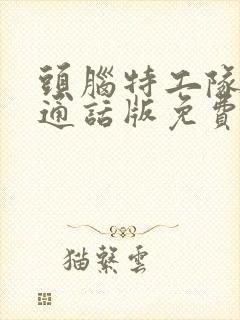 頭腦特工隊
通話版免費
猫繁雲